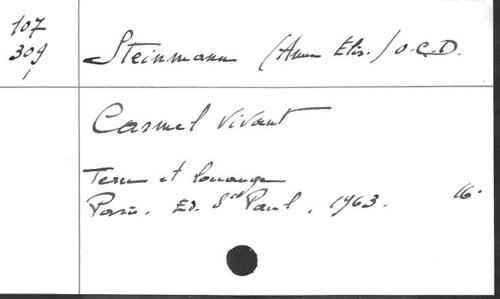 107
309
1
Steinmann (Anne Elis.) O.C.D.
Carmel vivant
Terre et louange
Paris. Ed. St Paul, 1963. 16°